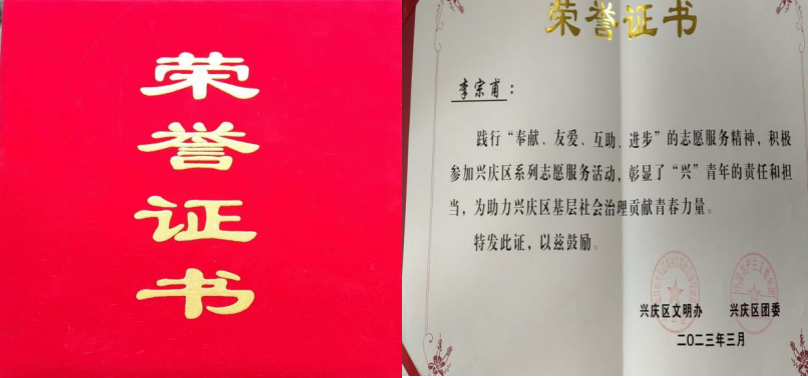 荣
誉
证
书
荣誉证书
李宗甫：
践行“奉献、友爱、互助、进步”的志愿服务精神，积极
参加兴庆区系列志愿服务活动，彰显了“兴”青年的责任和担
当，为助力兴庆区基层社会治理贡献青春力量。
特发此证，以兹鼓励。
兴庆区文明办 兴庆区团委
二〇二三年三月